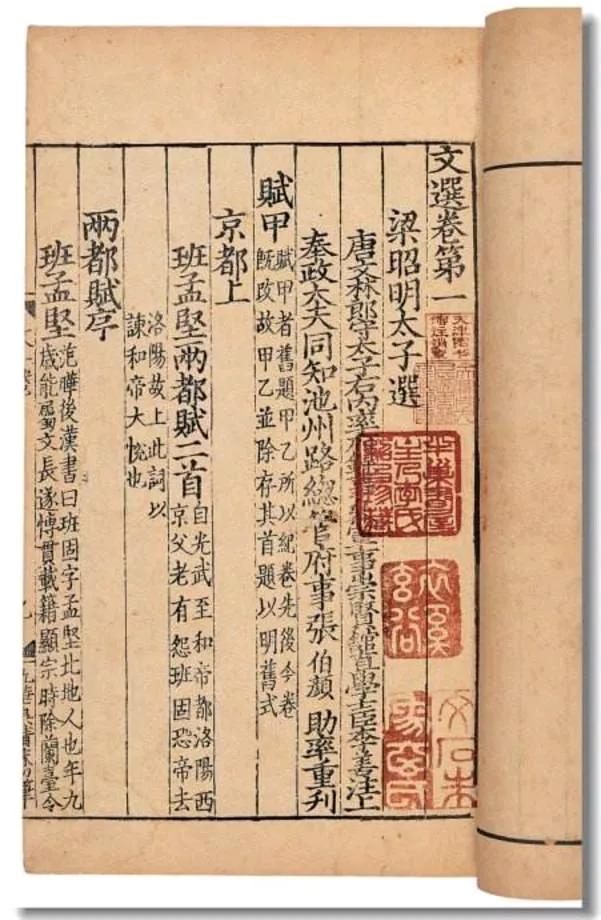 文選卷第一
梁昭明太子選
唐文林郎守太子右内率事崇賢館直學士臣李善注上
奉政大夫同知池州路總管府事張伯顏助率重刊
賦甲
賦甲者舊題甲乙所以紀卷先後今卷
既改故甲乙並除存其首題以明舊式
京都上
班孟堅兩都賦二首
自光武至和帝都洛陽西
京父老有怨班固恐帝去
洛陽故上此詞以
諫和帝大恱也
兩都賦序
班孟堅
范曄後漢書曰班固字孟堅北地人也年九
歲能屬文長遂博貫載籍顯宗時除蘭臺令